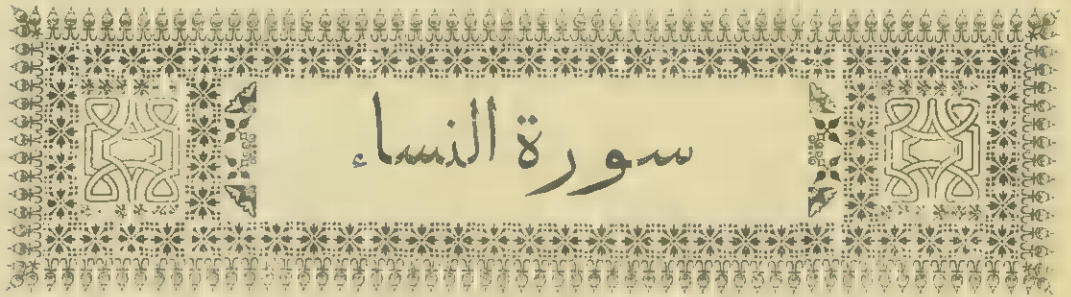 سورة النساء